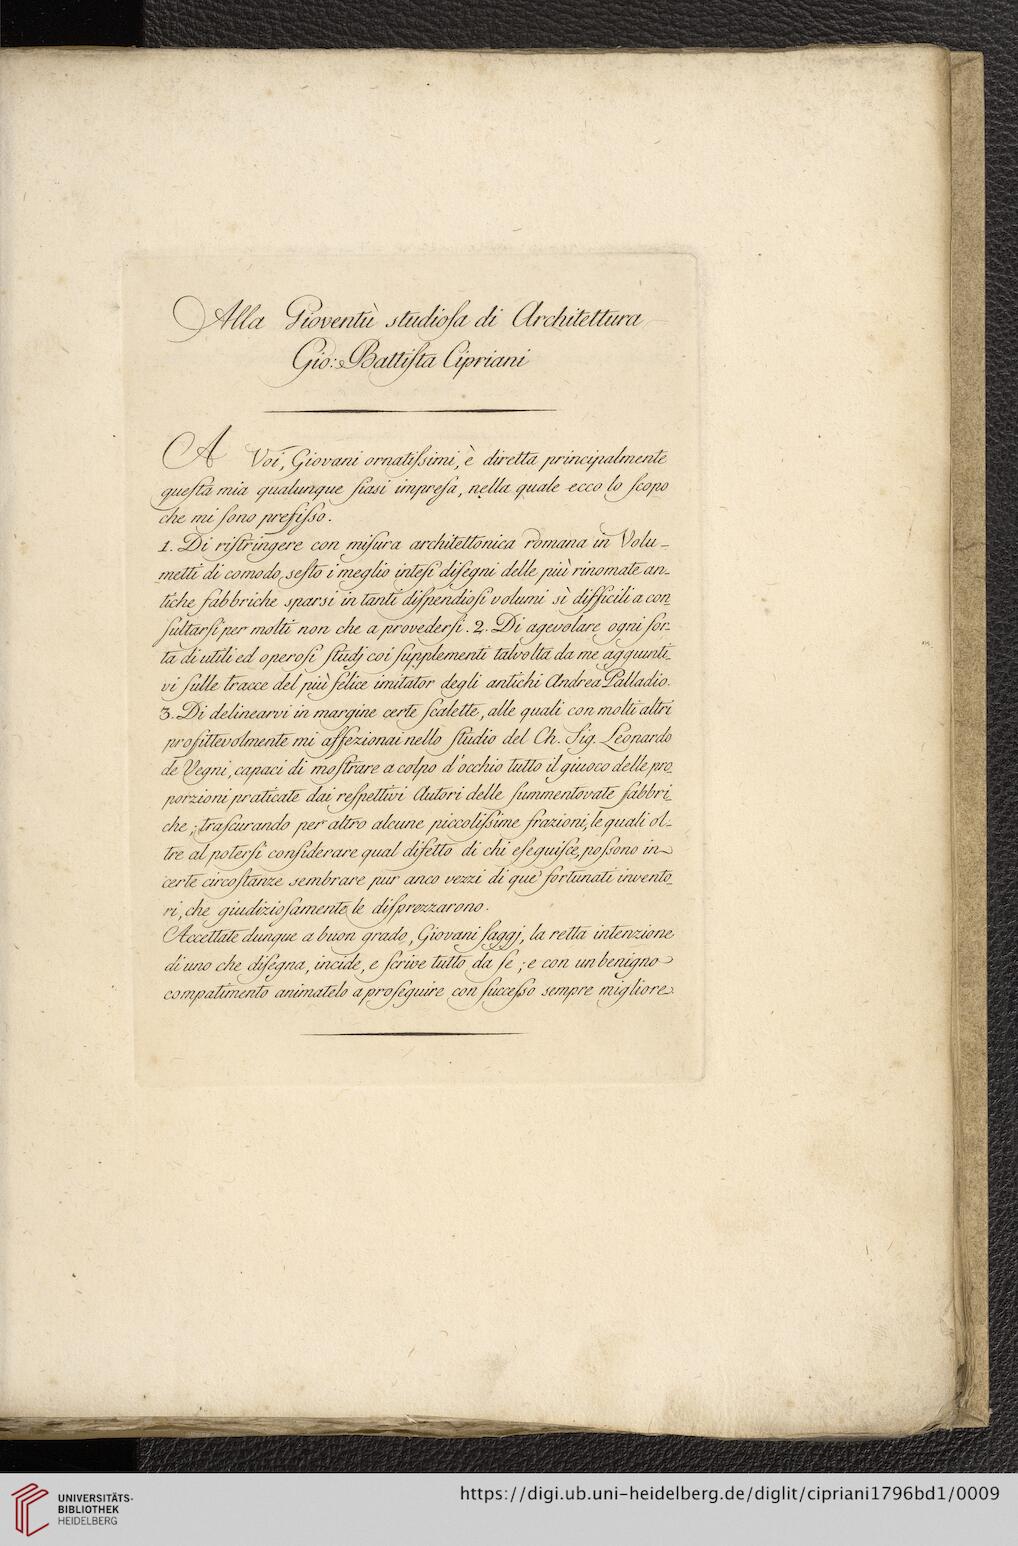 Alla Gioventù studiosa di Architettura
Gio: Battista Cipriani
A Voi, Giovani ornatissimi, è diretta principalmente
questa mia qualunque siasi impresa, nella quale ecco lo scopo
che mi sono prefisso.
1. Di ristringere con misura architettonica romana in Volu-
metti di comodo sesto i meglio intesi disegni delle più rinomate an-
tiche fabbriche sparsi in tanti dispendiosi volumi sì difficili a con-
sultarsi per molti non che a provedersi. 2. Di agevolare ogni sor-
ta di utili ed operosi studj coi supplementi talvolta da me aggiunti-
vi sulle tracce del più felice imitator degli antichi Andrea Palladio.
3. Di delinearvi in margine certe scalette, alle quali con molti altri
profittevolmente mi affezionai nello studio del Ch. Sig. Leonardo
de Vegni, capaci di mostrare a colpo d'occhio tutto il giuoco delle pro-
porzioni praticate dai respettivi Autori delle summentovate fabbri-
che; trascurando per altro alcune piccolissime frazioni, le quali ol-
tre al potersi considerare qual difetto di chi eseguisce, possono in
certe circostanze sembrare pur anco vezzi di que' fortunati invento-
ri, che giudiziosamente le disprezzarono.
Accettate dunque a buon grado, Giovani saggj, la retta intenzione
di uno che disegna, incide, e scrive tutto da se; e con un benigno
compatimento animatelo a proseguire con successo sempre migliore.
UNIVERSITÄTS-
BIBLIOTHEK
HEIDELBERG
https://digi.ub.uni-heidelberg.de/diglit/cipriani1796bd1/0009